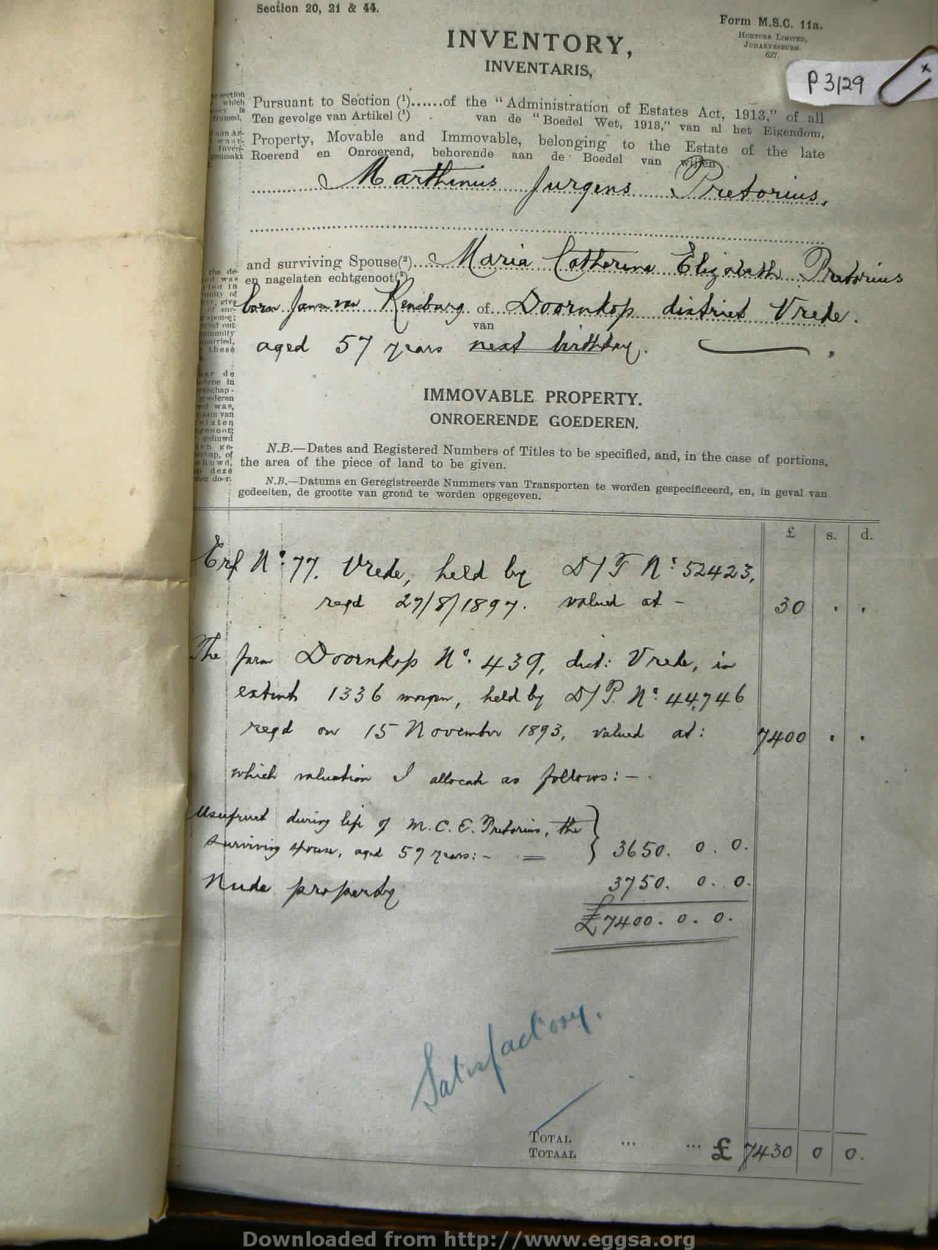 Section 20, 21 & 44.
Form M.S.C. 11a.
HORTORS LIMITED,
JOHANNESBURG.
627
P 3/29
INVENTORY,
INVENTARIS,
Pursuant to Section (¹)......of the "Administration of Estates Act, 1913," of all
Ten gevolge van Artikel (¹) van de "Boedel Wet, 1913," van al het Eigendom,
Property, Movable and Immovable, belonging to the Estate of the late
Roerend en Onroerend, behorende aan de Boedel van wijlen
Marthinus Jurgens Pretorius,
and surviving Spouse(²) Maria Catherina Elizabeth Pretorius
en nagelaten echtgenoot(²)
born Jansen van Rensburg of Doornkop district Vrede.
van
aged 57 years next birthday.
IMMOVABLE PROPERTY.
ONROERENDE GOEDEREN.
N.B.—Dates and Registered Numbers of Titles to be specified, and, in the case of portions,
the area of the piece of land to be given.
N.B.—Datums en Geregistreerde Nummers van Transporten te worden gespecificeerd, en, in geval van
gedeelten, de grootte van grond te worden opgegeven.
£ s. d.
Erf No. 77. Vrede, held by D/T No. 52423,
regd 27/8/1897. valued at - 30 . .
The farm Doornkop No. 439, dist: Vrede, in
extent 1336 morgen, held by D/P. No. 44746
regd on 15 November 1893, valued at: 7400 . .
which valuation I allocate as follows: -
Usufruct during life of M.C.E. Pretorius, the
surviving spouse, aged 57 years: - = } 3650. 0. 0.
Nude property 3750. 0. 0.
£7400. 0. 0.
Satisfactory.
TOTAL ... ... £ 7430 0 0.
TOTAAL
Downloaded from http://www.eggsa.org